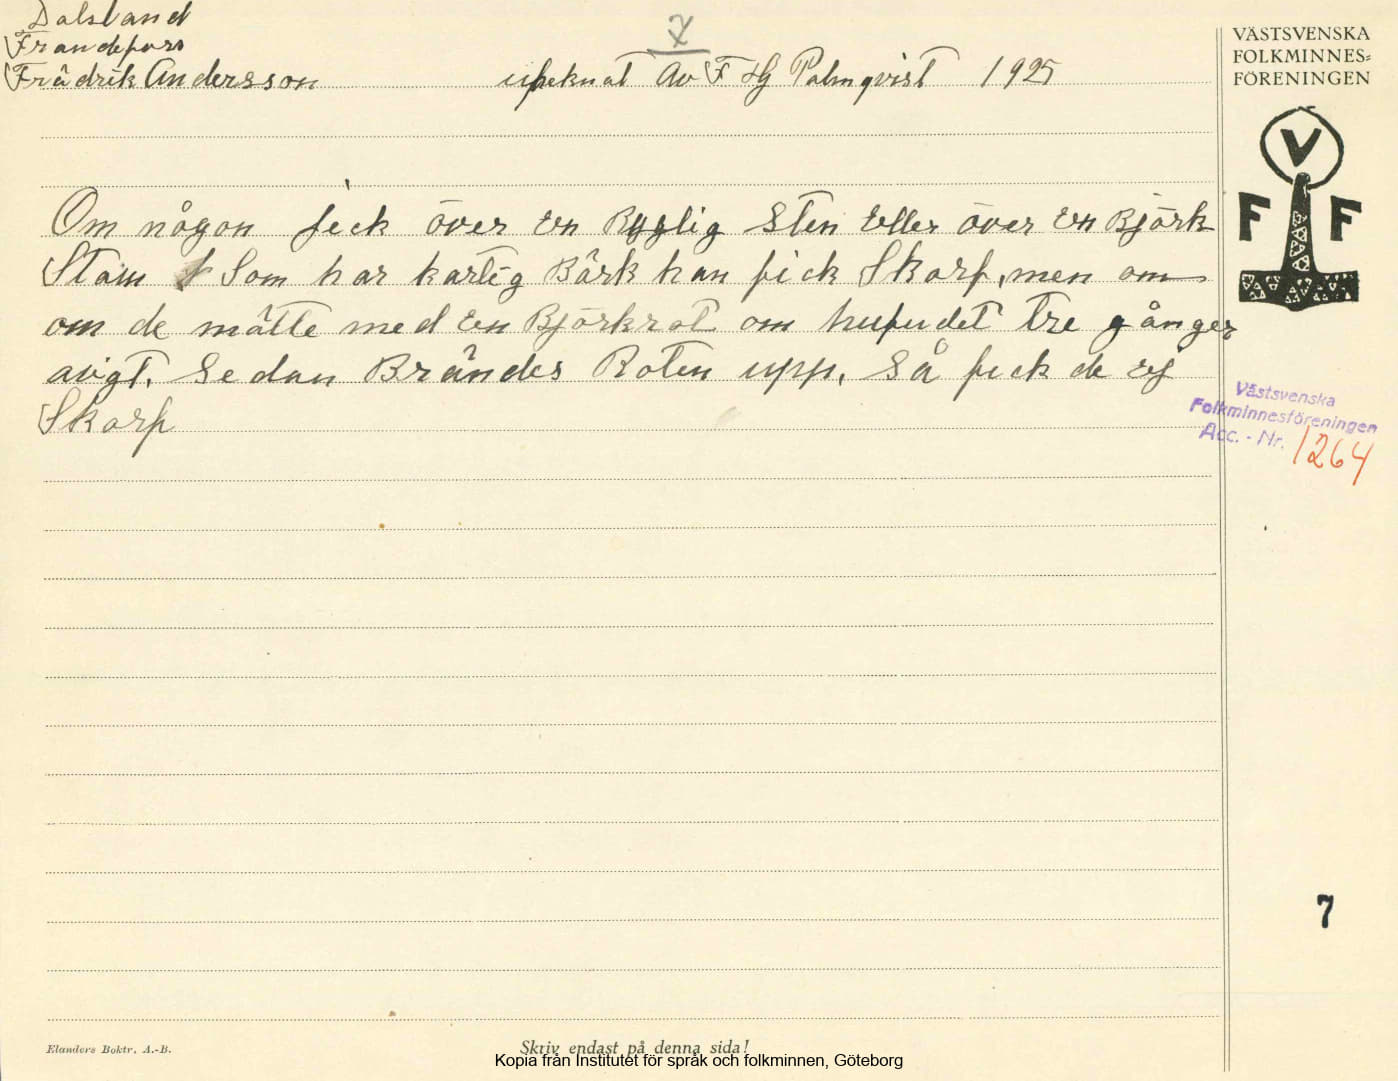 Dalsland
Frandefors
Frädrik Andersson
upteknat Av F Hj Palmqvist 1925
7
Om någon jeck över en Ryglig Sten eller över en Björk
Stam Som har kartig Bárk han fick Skorf, men om
om de mätte med en Björkrot om hufudet tre gånger
avigt. Sedan Brändes Roten upp. Så feck de ej
Skorf
VÄSTSVENSKA
FOLKMINNES=
FÖRENINGEN
V
F F
Västsvenska
Folkminnesföreningen
Acc. - Nr. 1264
7
Elanders Boktr. A.-B.
Skriv endast på denna sida!
Kopia från Institutet för språk och folkminnen, Göteborg